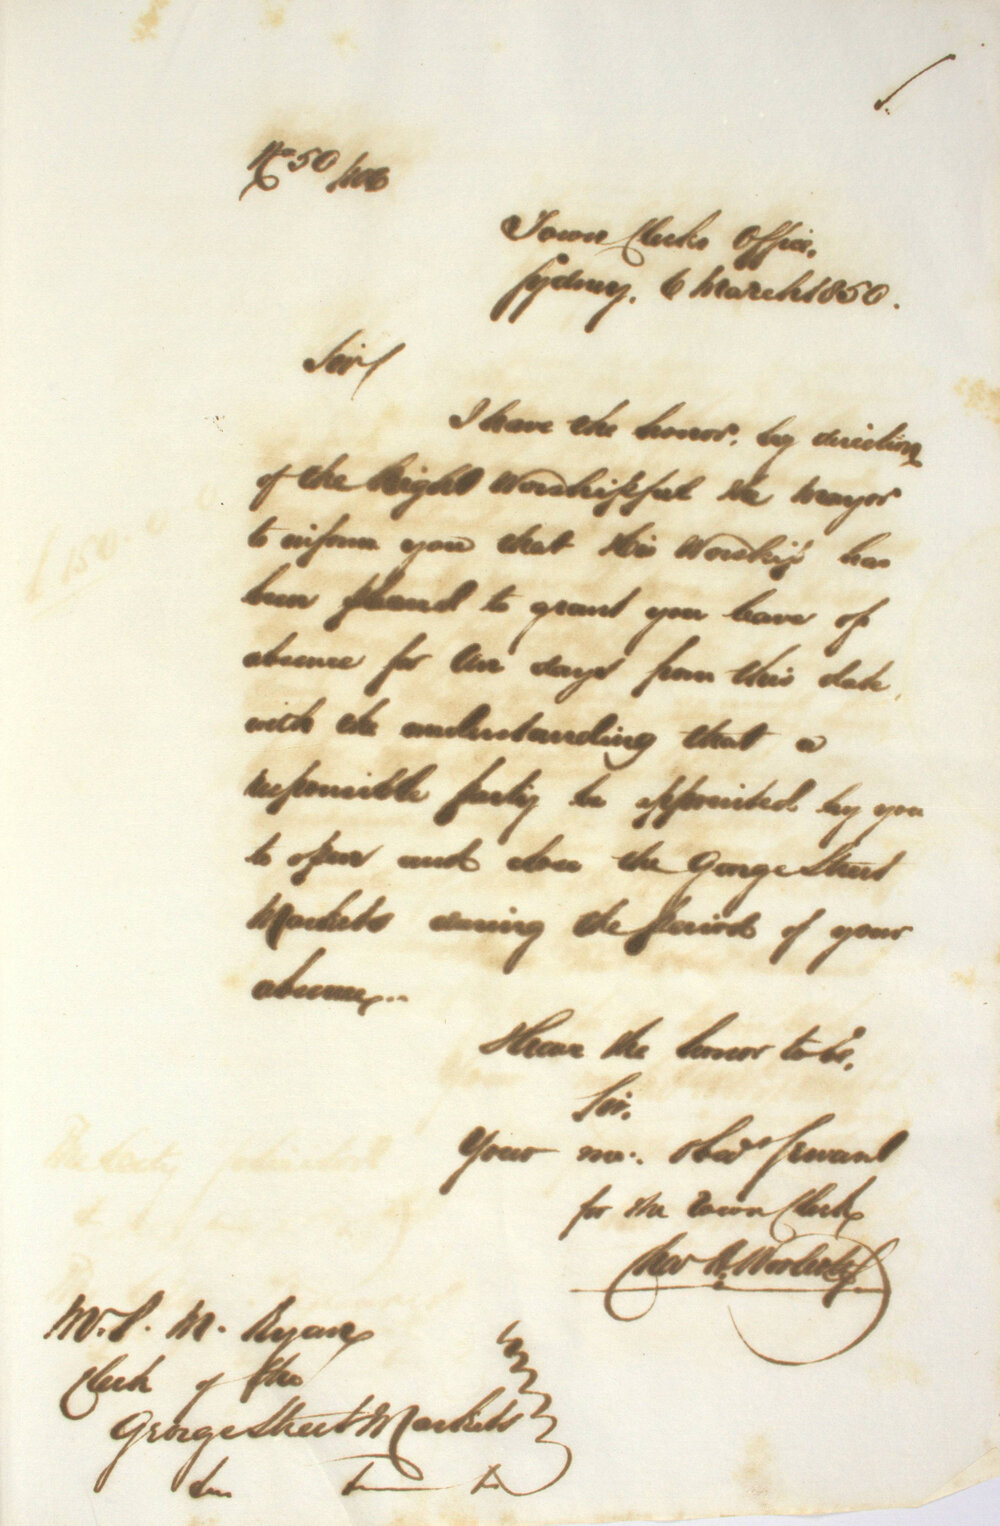 No 50/108
Town Clerks Office,
Sydney, 6 March 1850.
Sir/
I have the honor, by direction
of the Right Worshipful the Mayor
to inform you that His Worship has
been pleased to grant you leave of
absence for ten days from this date,
with the understanding that a
responsible party be appointed by you
to open and close the George Street
Markets during the period of your
absence,..
I have the honor to be,
Sir,
Your mo: Obedt Servant
for the Town Clerk
Mr. P. M. Ryan
Clerk of the
George Street Markets